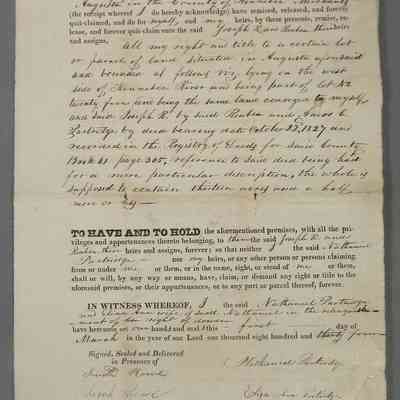 Augusta in the County of Kennebec
(the receipt whereof I do hereby acknowledge) have remised, released, and forever
quit-claimed, and do for myself, and my heirs, by these presents, remise, re-
lease, and forever quit-claim unto the said Joseph R and Reuben their heirs
and assigns,
All my right and title to a certain lot
or parcel of land situated in Augusta aforesaid
and bounded as follows viz, lying on the west
side of Kennebec River and being part of lot No
twenty four and being the same land conveyed to myself
and said Joseph R by said Reuben and Amos C
Partridge by deed bearing date October 22, 1827 and
recorded in the Registry of Deeds for said County
Book 61 page 305, reference to said deed being had
for a more particular description, the whole is
supposed to contain thirteen acres and a half
more or less
TO HAVE AND TO HOLD the aforementioned premises, with all the pri-
vileges and appurtenances thereto belonging, to them the said Joseph R and
Reuben their heirs and assigns, forever; so that neither I the said Nathaniel
Partridge nor my heirs, or any other person or persons claiming
from or under me or them, or in the name, right, or stead of me or them,
shall or will, by any way or means, have, claim, or demand any right or title to the
aforesaid premises, or their appurtenances, or to any part or parcel thereof, forever.
IN WITNESS WHEREOF, I the said Nathaniel Partridge
and wife of said Nathaniel in the relinquish-
ment of her right of dower
have hereunto set our hands and seals this first day of
March in the year of our Lord one thousand eight hundred and thirty four
Signed, Sealed and Delivered
in Presence of
Nathaniel Partridge